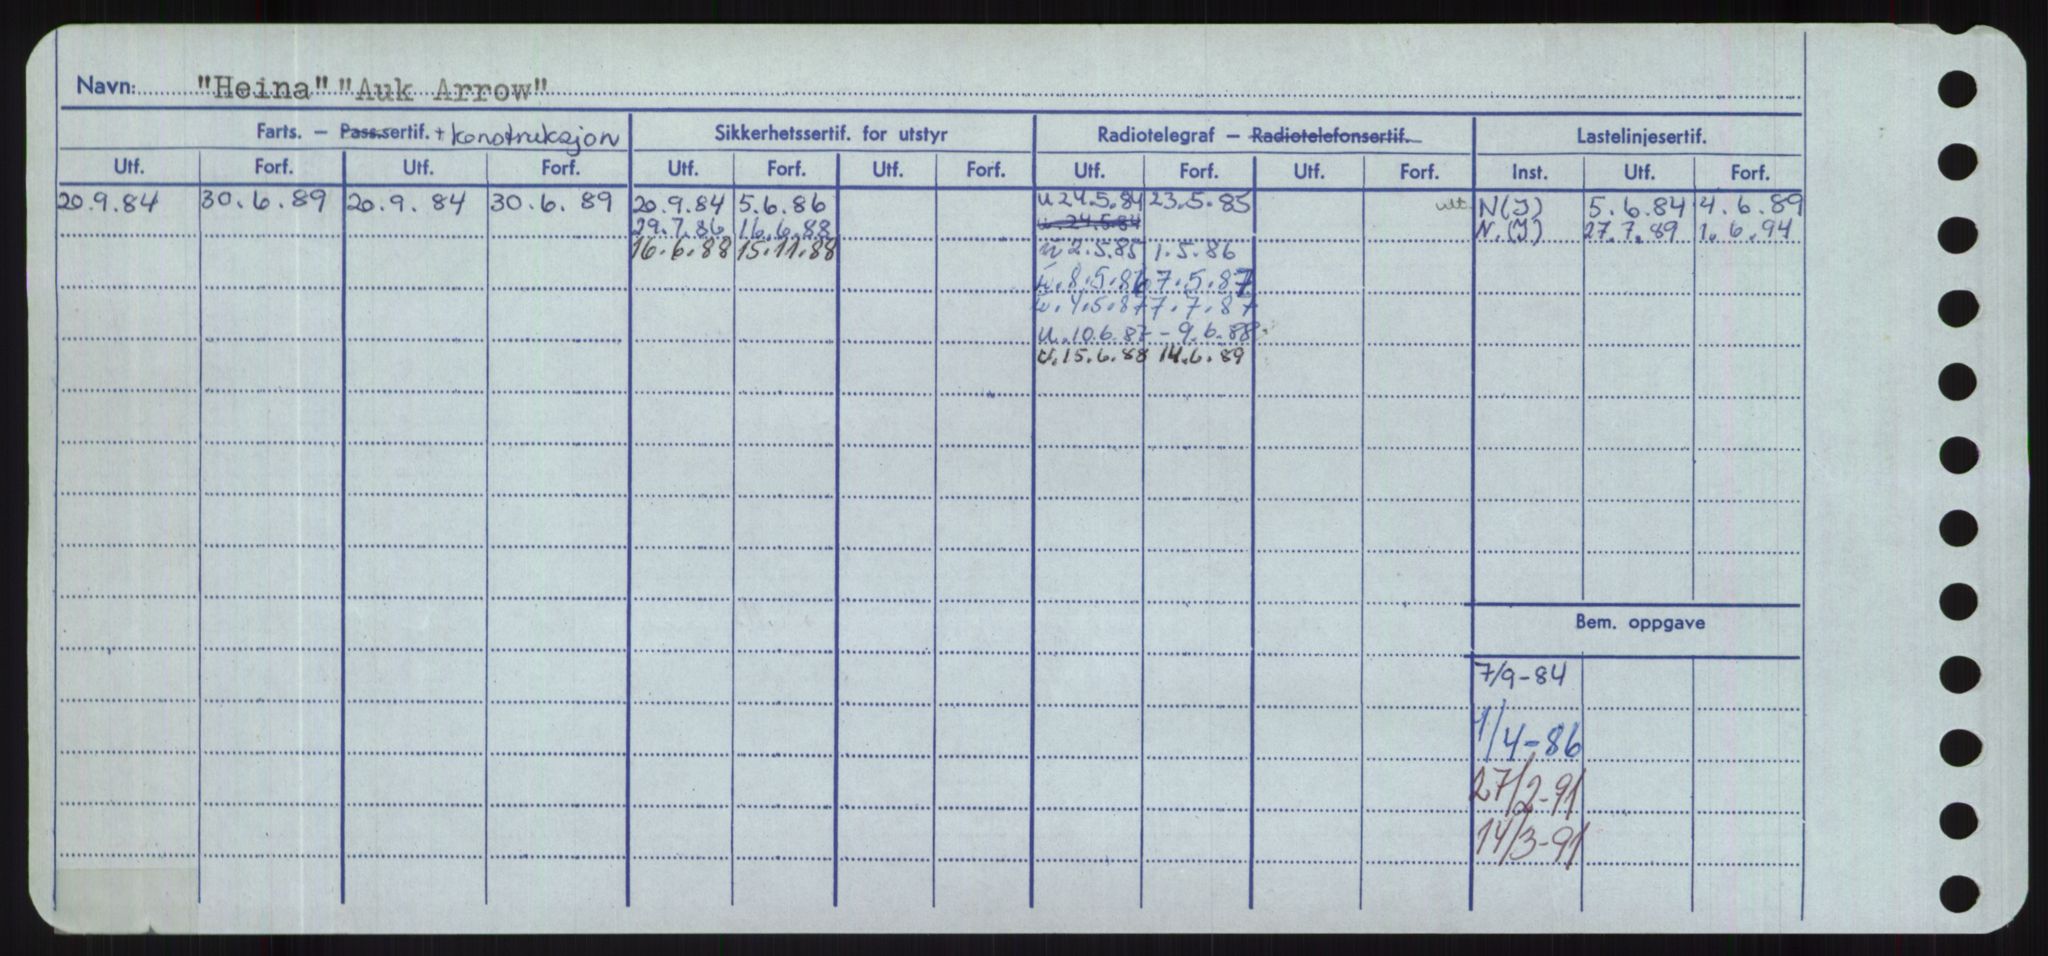 Navn: "Heina" "Auk Arrow"
Farts. — Pass.sertif. + konstruksjon Sikkerhetssertif. for utstyr Radiotelegraf — Radiotelefonsertif. Lastelinjesertif.
Utf. Forf. Utf. Forf. Utf. Forf. Utf. Forf. Utf. Forf. Utf. Forf. Inst. Utf. Forf.
20.9.84 30.6.89 20.9.84 30.6.89 20.9.84 5.6.86 u 24.5.84 23.5.85 utl. N(I) 5.6.84 4.6.89
29.7.86 16.6.88 u 24.5.84 N.(I) 27.7.89 1.6.94
16.6.88 15.11.88 u 2.5.85 1.5.86
u.8.5.86 7.5.87
u.4.5.87 7.7.87
u.10.6.87 - 9.6.88
u.15.6.88 14.6.89
Bem. oppgave
7/9-84
1/4-86
27/2-91
14/3-91